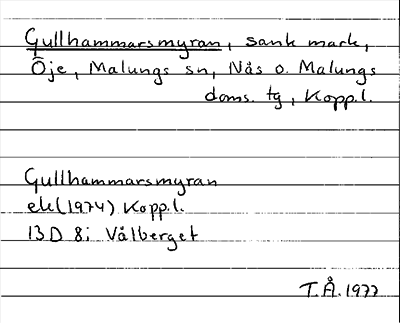 Gullhammarsmyran, sank mark,
Öje, Malungs sn, Nås o. Malungs
doms. tg, Kopp.l.
Gullhammarsmyran
ek (1974) Kopp.l.
13 D 8i Vålberget
T.Å. 1977